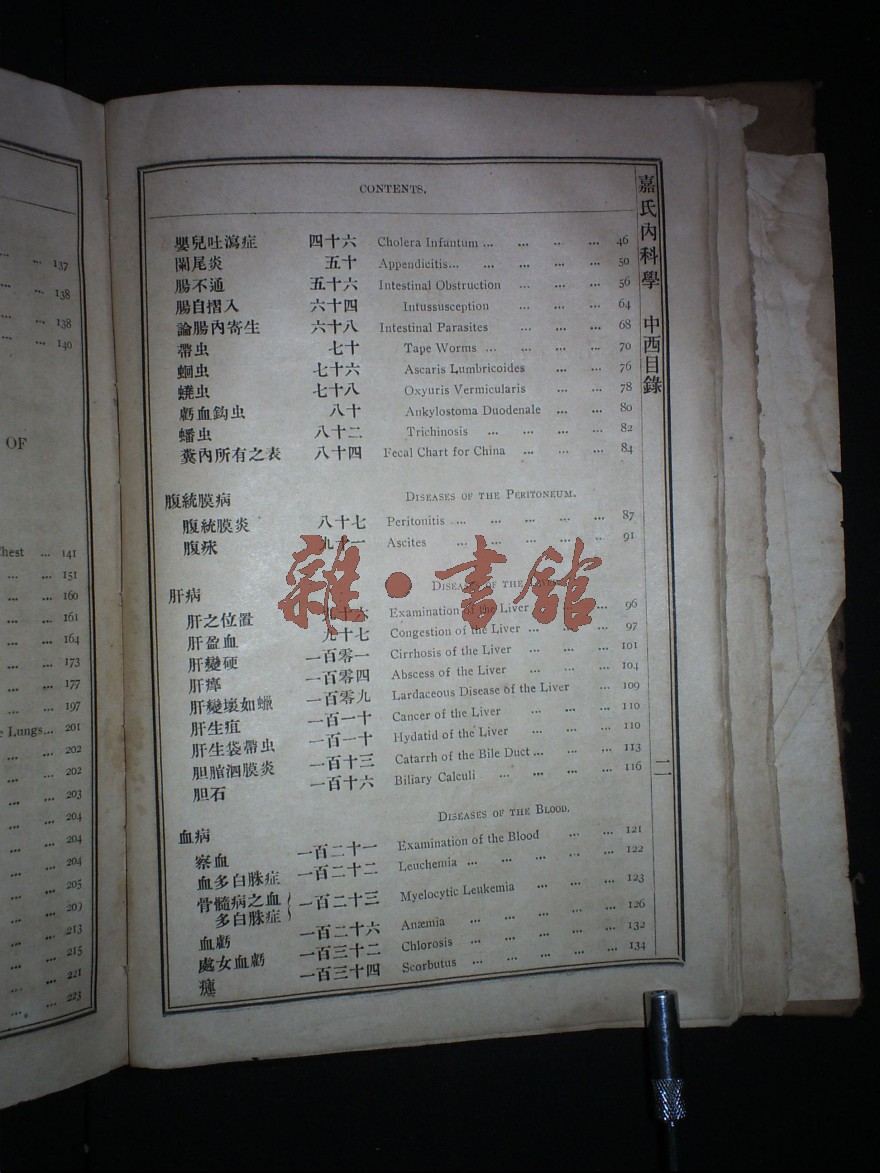 137
138
138
140
OF
Chest ... 141
... ... 151
... ... 160
... ... 161
... ... 164
... ... 173
... ... 177
... ... 197
e Lungs... 201
... ... 202
... ... 202
... ... 203
... ... 204
... ... 204
... ... 204
... ... 205
... ... 209
... ... 213
... ... 215
... ... 221
... ... 223
CONTENTS.
嬰兒吐瀉症 四十六 Cholera Infantum ... ... ... ... 46
闌尾炎 五十 Appendicitis... ... ... ... ... 50
腸不通 五十六 Intestinal Obstruction ... ... ... 56
腸自摺入 六十四 Intussusception ... ... ... 64
論腸內寄生 六十八 Intestinal Parasites ... ... ... 68
帶虫 七十 Tape Worms ... ... ... ... 70
蛔虫 七十六 Ascaris Lumbricoides ... ... 76
蟯虫 七十八 Oxyuris Vermicularis ... ... 78
虧血鈎虫 八十 Ankylostoma Duodenale ... ... 80
蟠虫 八十二 Trichinosis ... ... ... ... 82
糞內所有之表 八十四 Fecal Chart for China ... ... ... 84
腹統膜病 DISEASES OF THE PERITONEUM.
腹統膜炎 八十七 Peritonitis ... ... ... ... ... 87
腹㽷 九十一 Ascites ... ... ... ... ... 91
肝病 DISEASES OF THE LIVER.
肝之位置 九十六 Examination of the Liver ... ... ... 96
肝盈血 九十七 Congestion of the Liver ... ... ... 97
肝變硬 一百零一 Cirrhosis of the Liver ... ... ... 101
肝癰 一百零四 Abscess of the Liver ... ... ... 104
肝變壞如蠟 一百零九 Lardaceous Disease of the Liver ... 109
肝生疽 一百一十 Cancer of the Liver ... ... ... 110
肝生袋帶虫 一百一十 Hydatid of the Liver ... ... ... 110
胆膪泗膜炎 一百十三 Catarrh of the Bile Duct ... ... ... 113
胆石 一百十六 Biliary Calculi ... ... ... ... 116
血病 DISEASES OF THE BLOOD.
察血 一百二十一 Examination of the Blood ... ... 121
血多白脒症 一百二十二 Leuchemia ... ... ... ... ... 122
骨髓病之血
多白脒症 一百二十三 Myelocytic Leukemia ... ... ... 123
血虧 一百二十六 Anæmia ... ... ... ... ... 126
處女血虧 一百三十二 Chlorosis ... ... ... ... ... 132
瘇 一百三十四 Scorbutus ... ... ... ... ... 134
嘉氏內科學 中西目錄
二
雜·書館